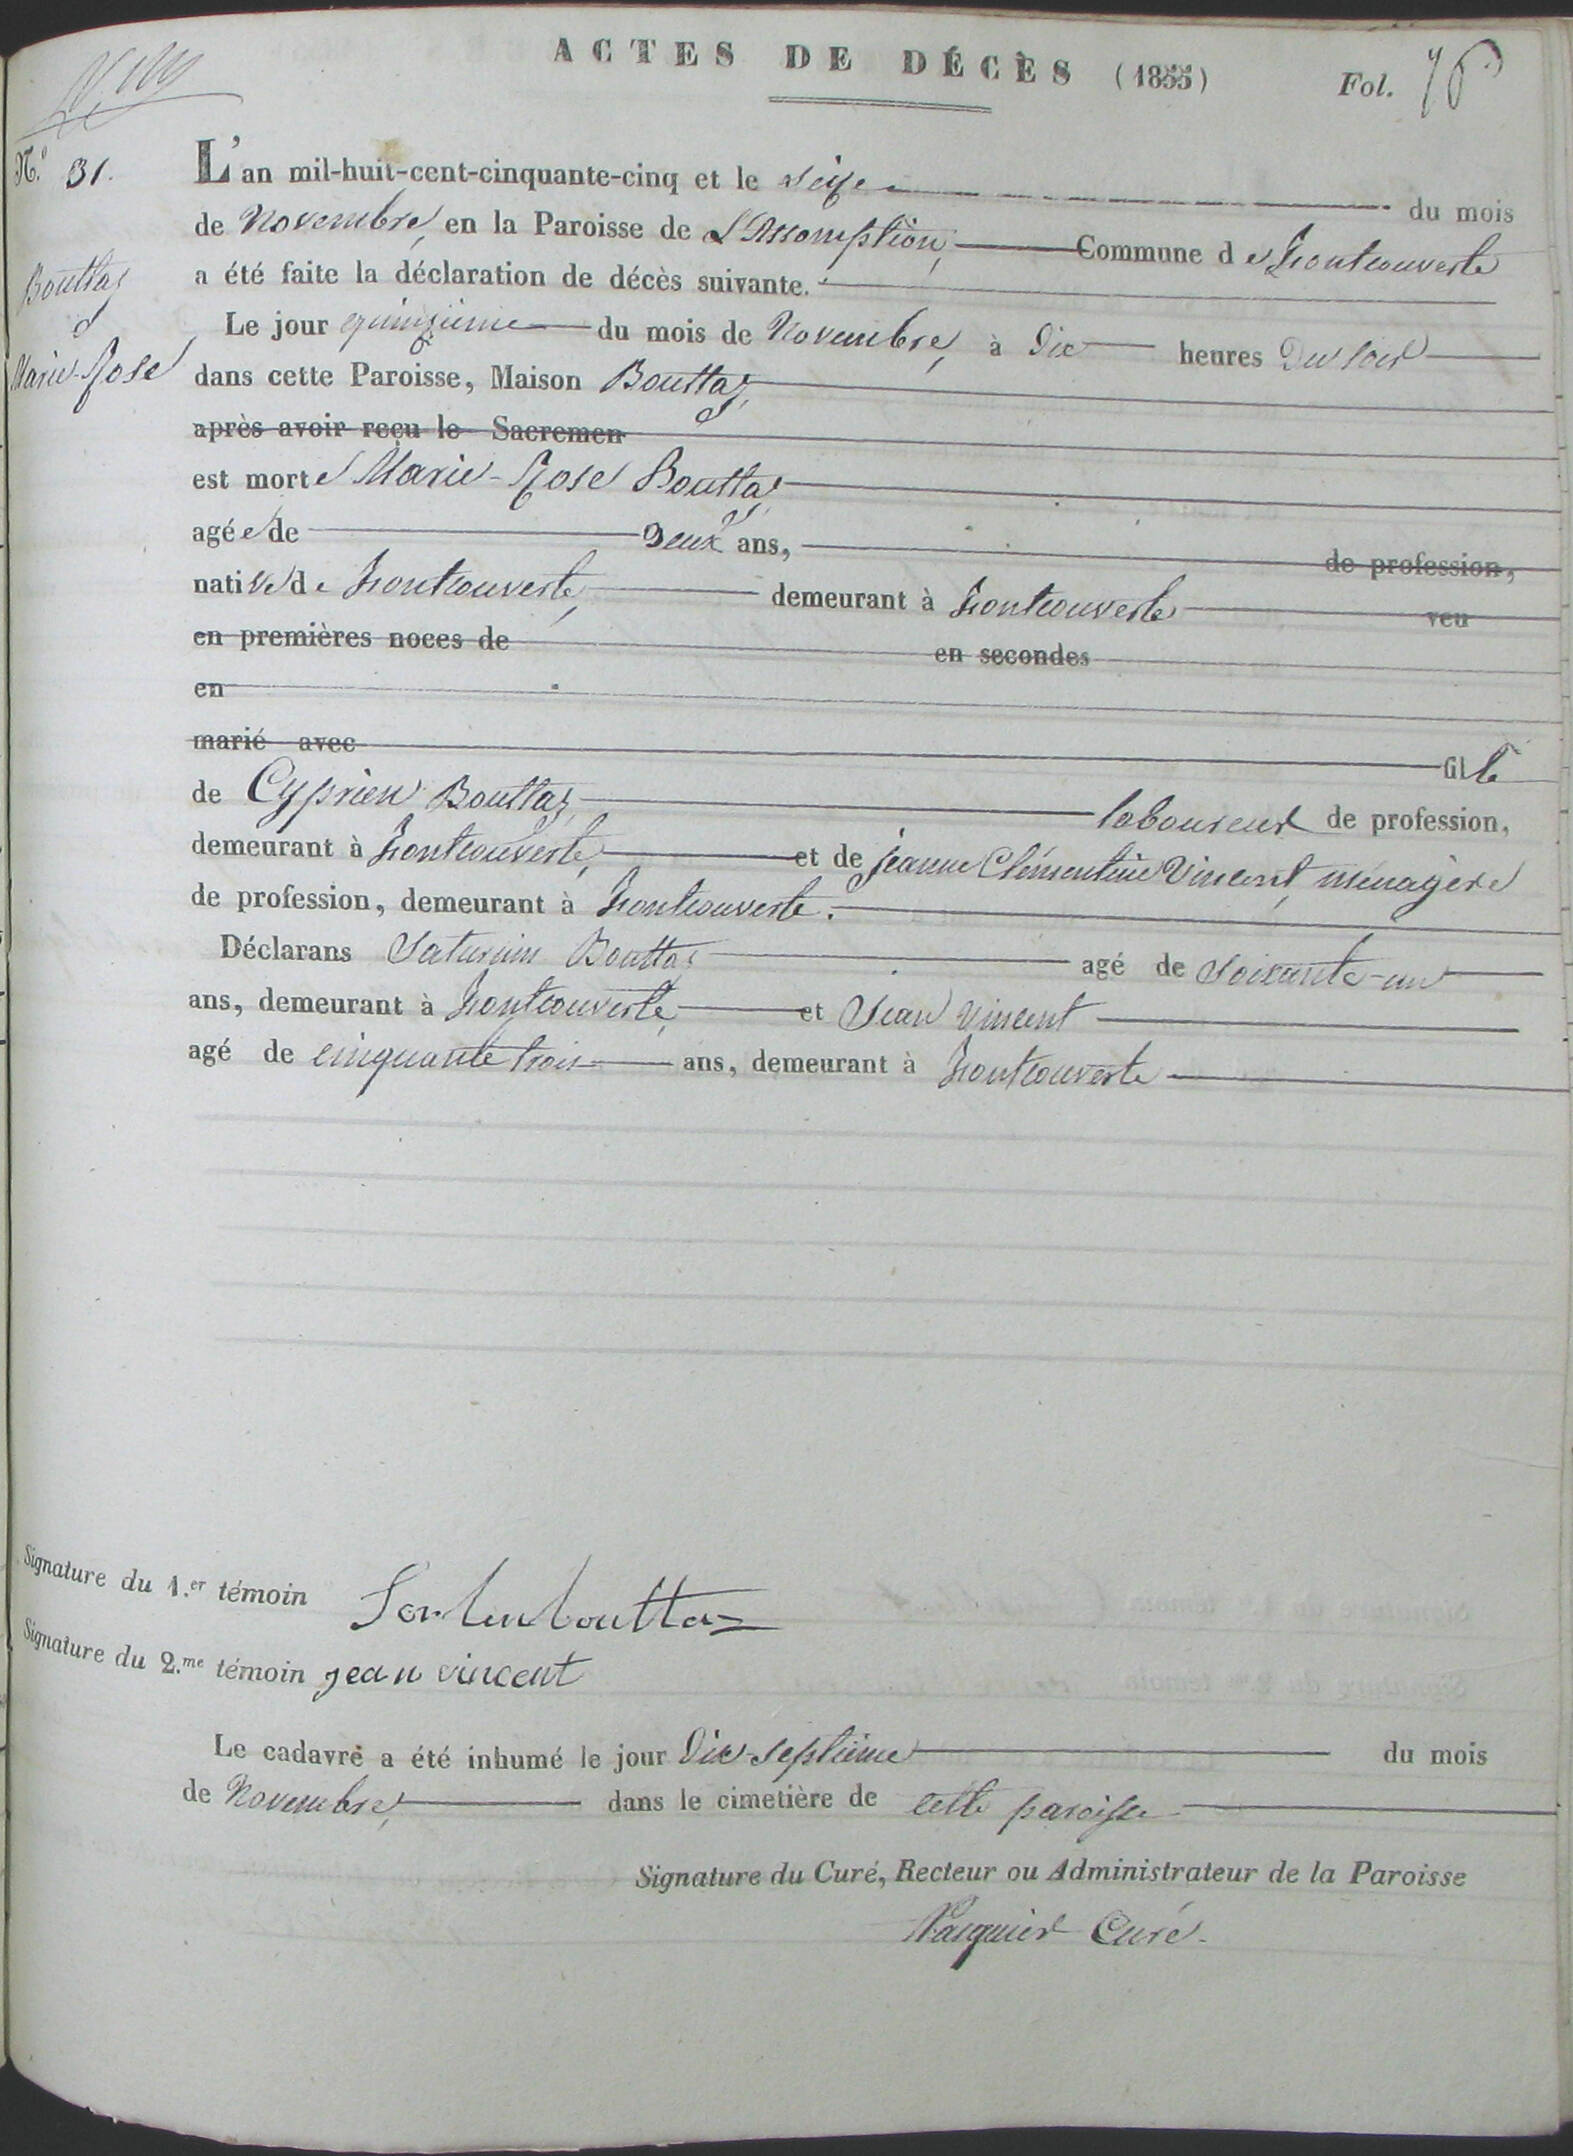 ACTES DE DÉCÈS (1855) Fol. 76
N.º 31.
Bouttaz
Marie-Rose
L'an mil-huit-cent-cinquante-cinq et le seize du mois
de Novembre, en la Paroisse de L'Assomption, Commune de Montcouverte
a été faite la déclaration de décès suivante.
Le jour quinzième du mois de Novembre, à Dix heures Du soir
dans cette Paroisse, Maison Bouttaz,
après avoir reçu le Sacremen
est morte Marie-Rose Bouttaz,
agée de Deux ans, de profession,
native de Montcouverte, demeurant à Montcouverte veu
en premières noces de en secondes
en
marié avec fille
de Cyprien Bouttaz, laboureur de profession,
demeurant à Montcouverte, et de jeanne Clémentine Vincent, ménagère
de profession, demeurant à Montcouverte.
Déclarans Saturnin Bouttaz agé de soixante-un
ans, demeurant à Montcouverte, et Jean Vincent
agé de cinquante trois ans, demeurant à Montcouverte
Signature du 1.er témoin bouttaz
Signature du 2.me témoin jean vincent
Le cadavre a été inhumé le jour Dix-septième du mois
de Novembre, dans le cimetière de cette paroisse
Signature du Curé, Recteur ou Administrateur de la Paroisse
Pasquier Curé.